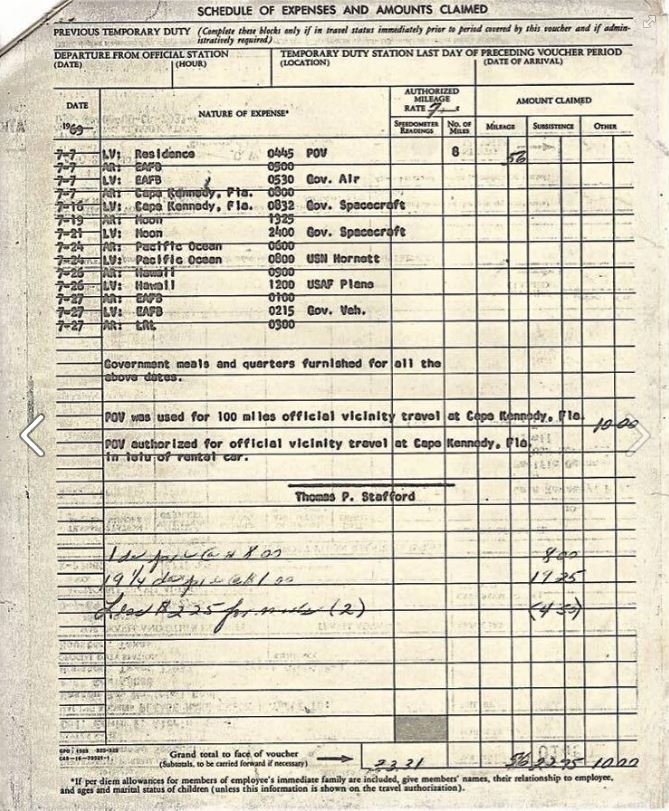 SCHEDULE OF EXPENSES AND AMOUNTS CLAIMED
PREVIOUS TEMPORARY DUTY (Complete these blocks only if in travel status immediately prior to period covered by this voucher and if admin-
istratively required)
DEPARTURE FROM OFFICIAL STATION TEMPORARY DUTY STATION LAST DAY OF PRECEDING VOUCHER PERIOD
(DATE) (HOUR) (LOCATION) (DATE OF ARRIVAL)
DATE NATURE OF EXPENSE* AUTHORIZED MILEAGE RATE 7 AMOUNT CLAIMED
1969 SPEEDOMETER READINGS NO. OF MILES MILEAGE SUBSISTENCE OTHER
7-7 LV: Residence 0445 POV 8 56
7-7 AR: EAFB 0500
7-7 LV: EAFB 0530 Gov. Air
7-7 AR: Cape Kennedy, Fla. 0800
7-16 LV: Cape Kennedy, Fla. 0832 Gov. Spacecraft
7-19 AR: Moon 1325
7-21 LV: Moon 2400 Gov. Spacecraft
7-24 AR: Pacific Ocean 0600
7-24 LV: Pacific Ocean 0800 USN Hornett
7-26 AR: Hawaii 0900
7-26 LV: Hawaii 1200 USAF Plane
7-27 AR: EAFB 0100
7-27 LV: EAFB 0215 Gov. Veh.
7-27 AR: 0300
Government meals and quarters furnished for all the
above dates.
POV was used for 100 miles official vicinity travel at Cape Kennedy, Fla. 10.00
POV authorized for official vicinity travel at Cape Kennedy, Fla.
in leiu of rental car.
Thomas P. Stafford
1 8 00 8 00
19 1/4 1 00 19 25
Less $2.25 for meals (2) (4 50)
GPO : 1968
Grand total to face of voucher
(Subtotals, to be carried forward if necessary) 33.31 56 22 75 10 00
*If per diem allowances for members of employee's immediate family are included, give members' names, their relationship to employee,
and ages and marital status of children (unless this information is shown on the travel authorization).